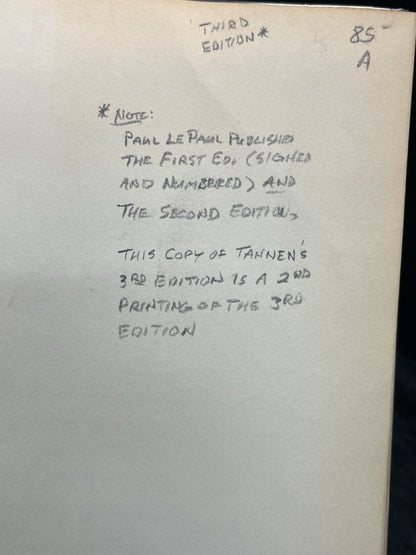 THIRD
EDITION*
85-
A
* NOTE:
PAUL LE PAUL PUBLISHED
THE FIRST ED. (SIGNED
AND NUMBERED) AND
THE SECOND EDITION,
THIS COPY OF TANNEN'S
3RD EDITION IS A 2ND
PRINTING OF THE 3RD
EDITION